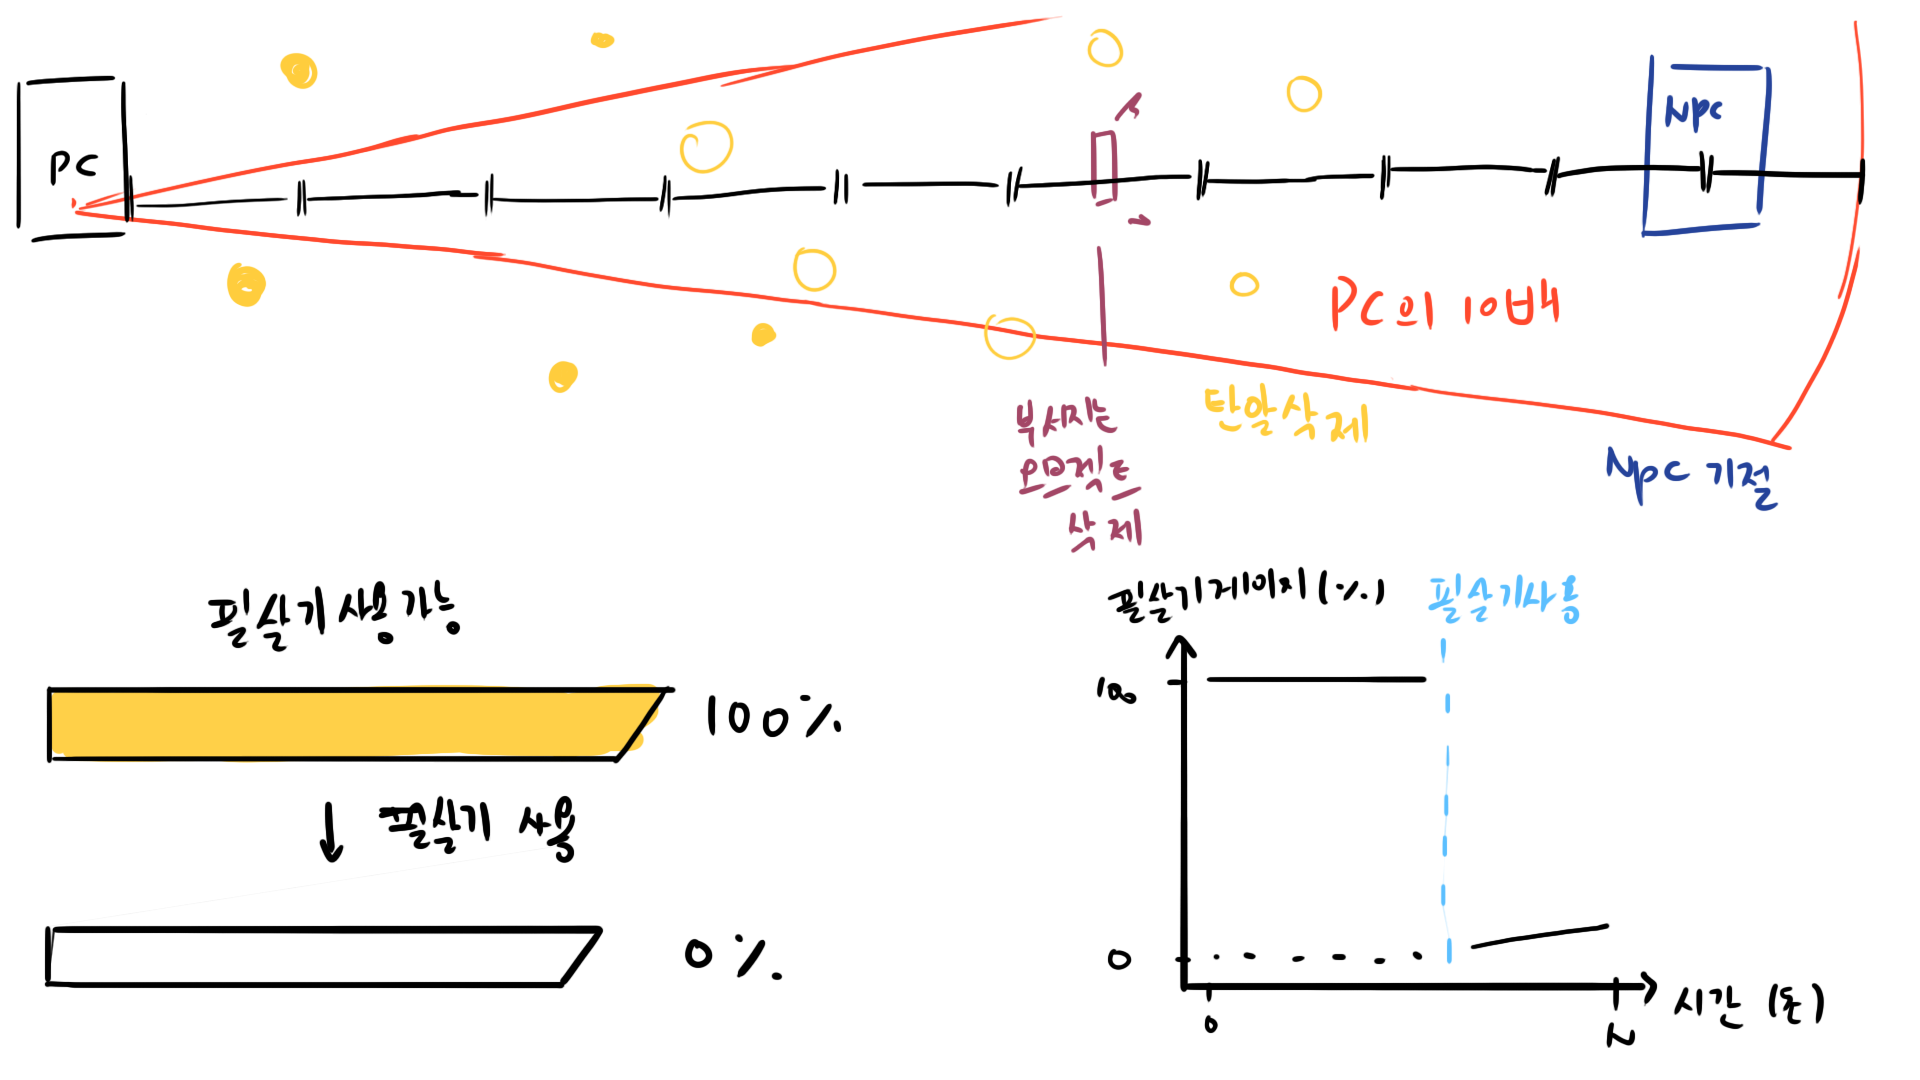 PC
Npc
PC의 10배
부서지는
오브젝트
삭제
탄알삭제
Npc 기절
필살기 사용 가능
100%
↓ 필살기 사용
0%
필살기게이지(%)
필살기사용
100
0
0
N
시간 (초)